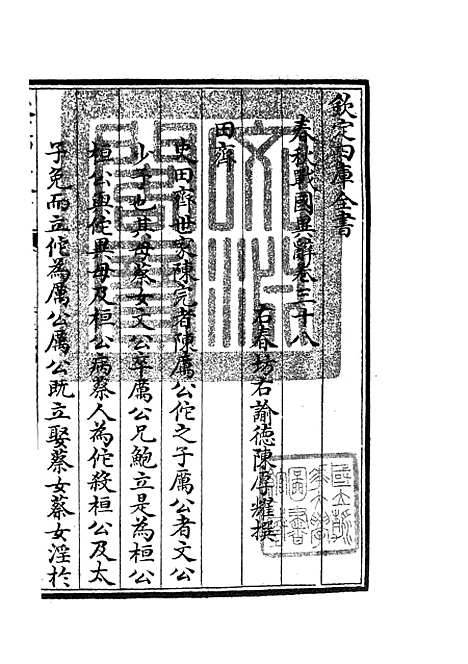 欽定四庫全書
春秋戰國異辭卷三十八
右春坊右諭德陳厚耀撰
田齊
史田齊世家陳完者陳厲公佗之子厲公者文公
少子也其母蔡女文公卒厲公兄鮑立是為桓公
桓公與佗異母及桓公病蔡人為佗殺桓公及太
子免而立佗為厲公厲公既立娶蔡女蔡女淫於